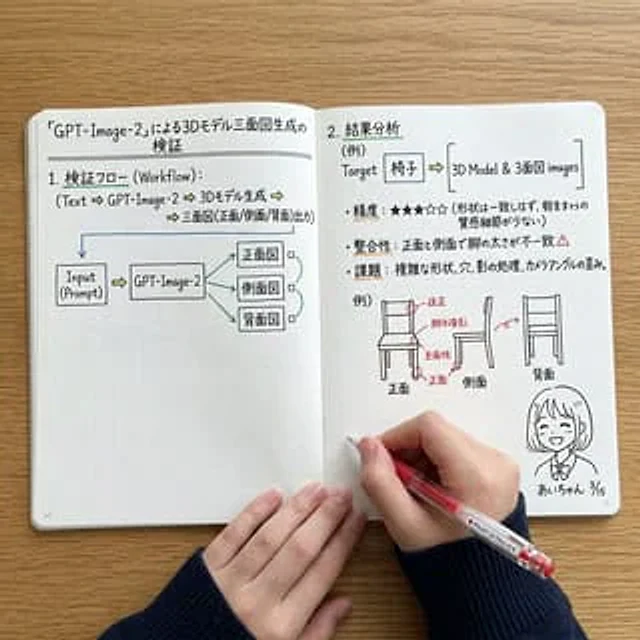 「GPT-Image-2」による3Dモデル三面図生成の
検証
1. 検証フロー (Workflow):
(Text ⇨ GPT-Image-2 ⇨ 3Dモデル生成 ⇨
⇨ 三面図(正面/側面/背面)出力)
Input
(Prompt)
⇨
GPT-Image-2
正面図
側面図
背面図
2. 結果分析
(例)
Target 椅子 ⇨ [3D Model & 3面図 images]
・精度: ★★★☆☆ (形状は一致しはず、
質感細部が少ない)
・整合性: 正面と側面で脚の太さが不一致⚠
・課題: 複雑な形状、穴、影の処理、カメラアングルの歪み。
例)
正面
正面
側面
背面
あいちゃん 3/15